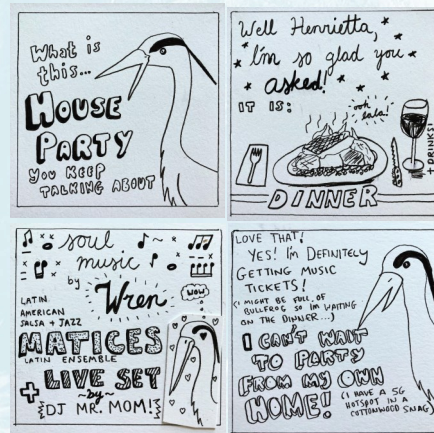 What is
this...
HOUSE
PARTY
YOU KEEP
TALKING ABOUT
Well Henrietta,
I'm so glad you
asked!
IT IS:
ooh
lala!
+ DRINKS!
DINNER
soul
music
by
Wren
WOW
LATIN
AMERICAN
SALSA + JAZZ
MATICES
LATIN ENSEMBLE
+
LIVE SET
~by~
DJ MR. MOM!
LOVE THAT!
YES! I'm DEFINITELY
GETTING MUSIC
TICKETS!
(I MIGHT BE FULL OF
BULLFROG SO I'M WAITING
ON THE DINNER...)
I CAN'T WAIT
TO PARTY
FROM MY OWN
HOME!
(I HAVE A 5G
HOTSPOT IN A
COTTONWOOD SNAG)